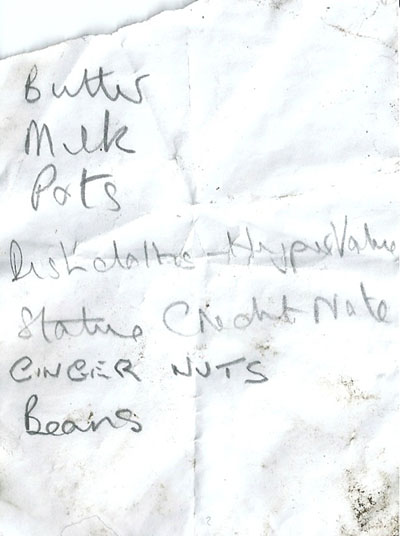 Butter
Milk
Pots
Dishcloths - HyperValue
Statue Credit Note
GINGER NUTS
Beans